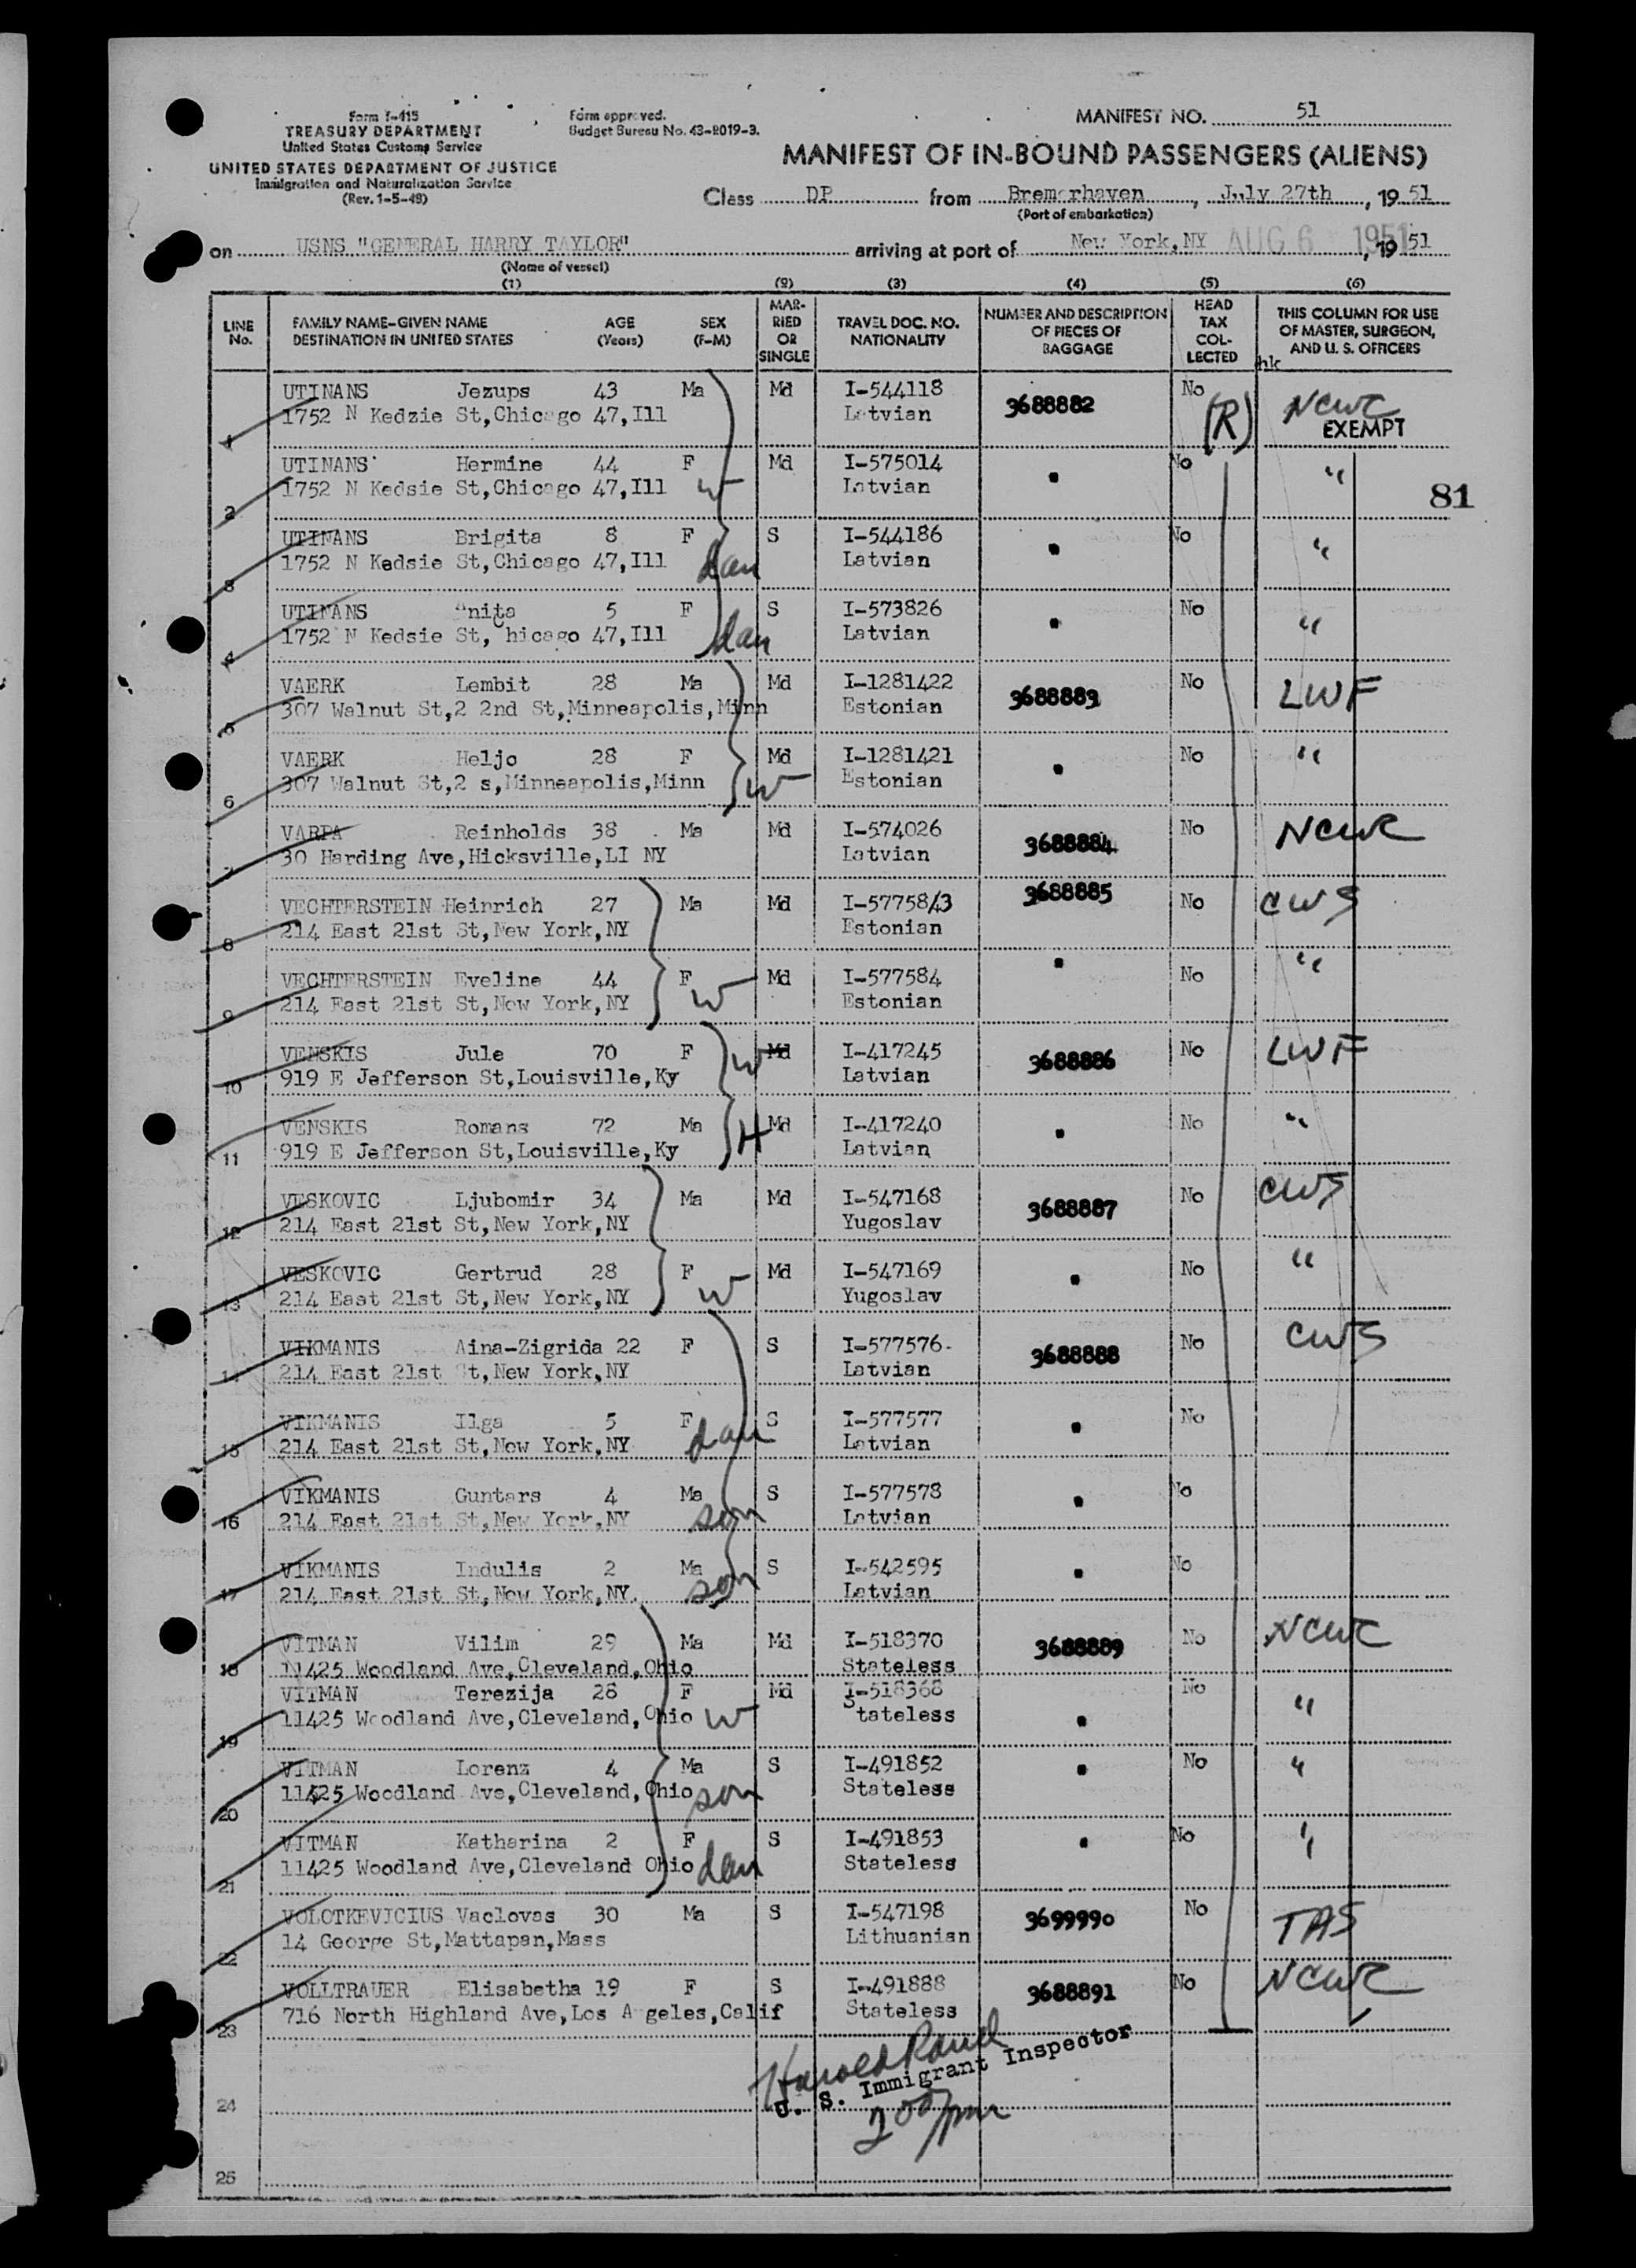 Form I-415
TREASURY DEPARTMENT
United States Customs Service
UNITED STATES DEPARTMENT OF JUSTICE
Immigration and Naturalization Service
(Rev. 1-5-49)
Form approved.
Budget Bureau No. 43-R019-3.
MANIFEST NO. 51
MANIFEST OF IN-BOUND PASSENGERS (ALIENS)
Class DP from Bremerhaven, July 27th, 19 51
(Port of embarkation)
on USNS "GENERAL HARRY TAYLOR" arriving at port of New York, NY AUG 6 1951, 19 51
(Name of vessel)
(1) (2) (3) (4) (5) (6)
LINE No. FAMILY NAME-GIVEN NAME DESTINATION IN UNITED STATES AGE (Years) SEX (F-M) MARRIED OR SINGLE TRAVEL DOC. NO. NATIONALITY NUMBER AND DESCRIPTION OF PIECES OF BAGGAGE HEAD TAX COLLECTED THIS COLUMN FOR USE OF MASTER, SURGEON, AND U. S. OFFICERS
hk
UTINANS Jezups 43 Ma Md I-544118 3688882 No (R) NCWC
1 1752 N Kedzie St,Chicago 47,Ill Latvian EXEMPT
UTINANS Hermine 44 F Md I-575014 " No "
2 1752 N Kedsie St,Chicago 47,Ill W Latvian
81
UTINANS Brigita 8 F S I-544186 " No "
3 1752 N Kedsie St,Chicago 47,Ill dau Latvian
UTINANS Anita 5 F S I-573826 " No "
4 1752 N Kedsie St,Chicago 47,Ill dau Latvian
VAERK Lembit 28 Ma Md I-1281422 3688883 No LWF
5 307 Walnut St,2 2nd St,Minneapolis,Minn Estonian
VAERK Heljo 28 F Md I-1281421 " No "
6 307 Walnut St,2 s,Minneapolis,Minn W Estonian
VARPA Reinholds 38 Ma Md I-574026 3688884 No NCWC
7 30 Harding Ave,Hicksville,LI NY Latvian
VECHTERSTEIN Heinrich 27 Ma Md I-577583 3688885 No CWS
8 214 East 21st St,New York,NY Estonian
VECHTERSTEIN Eveline 44 F Md I-577584 " No "
9 214 East 21st St,New York,NY W Estonian
VENSKIS Jule 70 F W Md I-417245 3688886 No LWF
10 919 E Jefferson St,Louisville,Ky Latvian
VENSKIS Romans 72 Ma H Md I-417240 " No "
11 919 E Jefferson St,Louisville,Ky Latvian
VESKOVIC Ljubomir 34 Ma Md I-547168 3688887 No CWS
12 214 East 21st St,New York,NY Yugoslav
VESKOVIC Gertrud 28 F Md I-547169 " No "
13 214 East 21st St,New York,NY W Yugoslav
VIKMANIS Aina-Zigrida 22 F S I-577576 3688888 No CWS
14 214 East 21st St,New York,NY Latvian
VIKMANIS Ilga 5 F S I-577577 " No
15 214 East 21st St,New York,NY dau Latvian
VIKMANIS Guntars 4 Ma S I-577578 " No
16 214 East 21st St,New York,NY son Latvian
VIKMANIS Indulis 2 Ma S I-542595 " No
17 214 East 21st St,New York,NY son Latvian
VITMAN Vilim 29 Ma Md I-518370 3688889 No NCWC
18 11425 Woodland Ave,Cleveland,Ohio Stateless
VITMAN Terezija 28 F Md I-518368 No
19 11425 Woodland Ave,Cleveland,Ohio W Stateless " "
VITMAN Lorenz 4 Ma S I-491852 " No "
20 11425 Woodland Ave,Cleveland,Ohio son Stateless
VITMAN Katharina 2 F S I-491853 " No "
21 11425 Woodland Ave,Cleveland Ohio dau Stateless
VOLOTKEVICIUS Vaclovas 30 Ma S I-547198 3699990 No TAS
22 14 George St,Mattapan,Mass Lithuanian
VOLLTRAUER Elisabetha 19 F S I-491888 3688891 No NCWC
23 716 North Highland Ave,Los Angeles,Calif Stateless
Harold Rand
U. S. Immigrant Inspector
24
200 pm
25